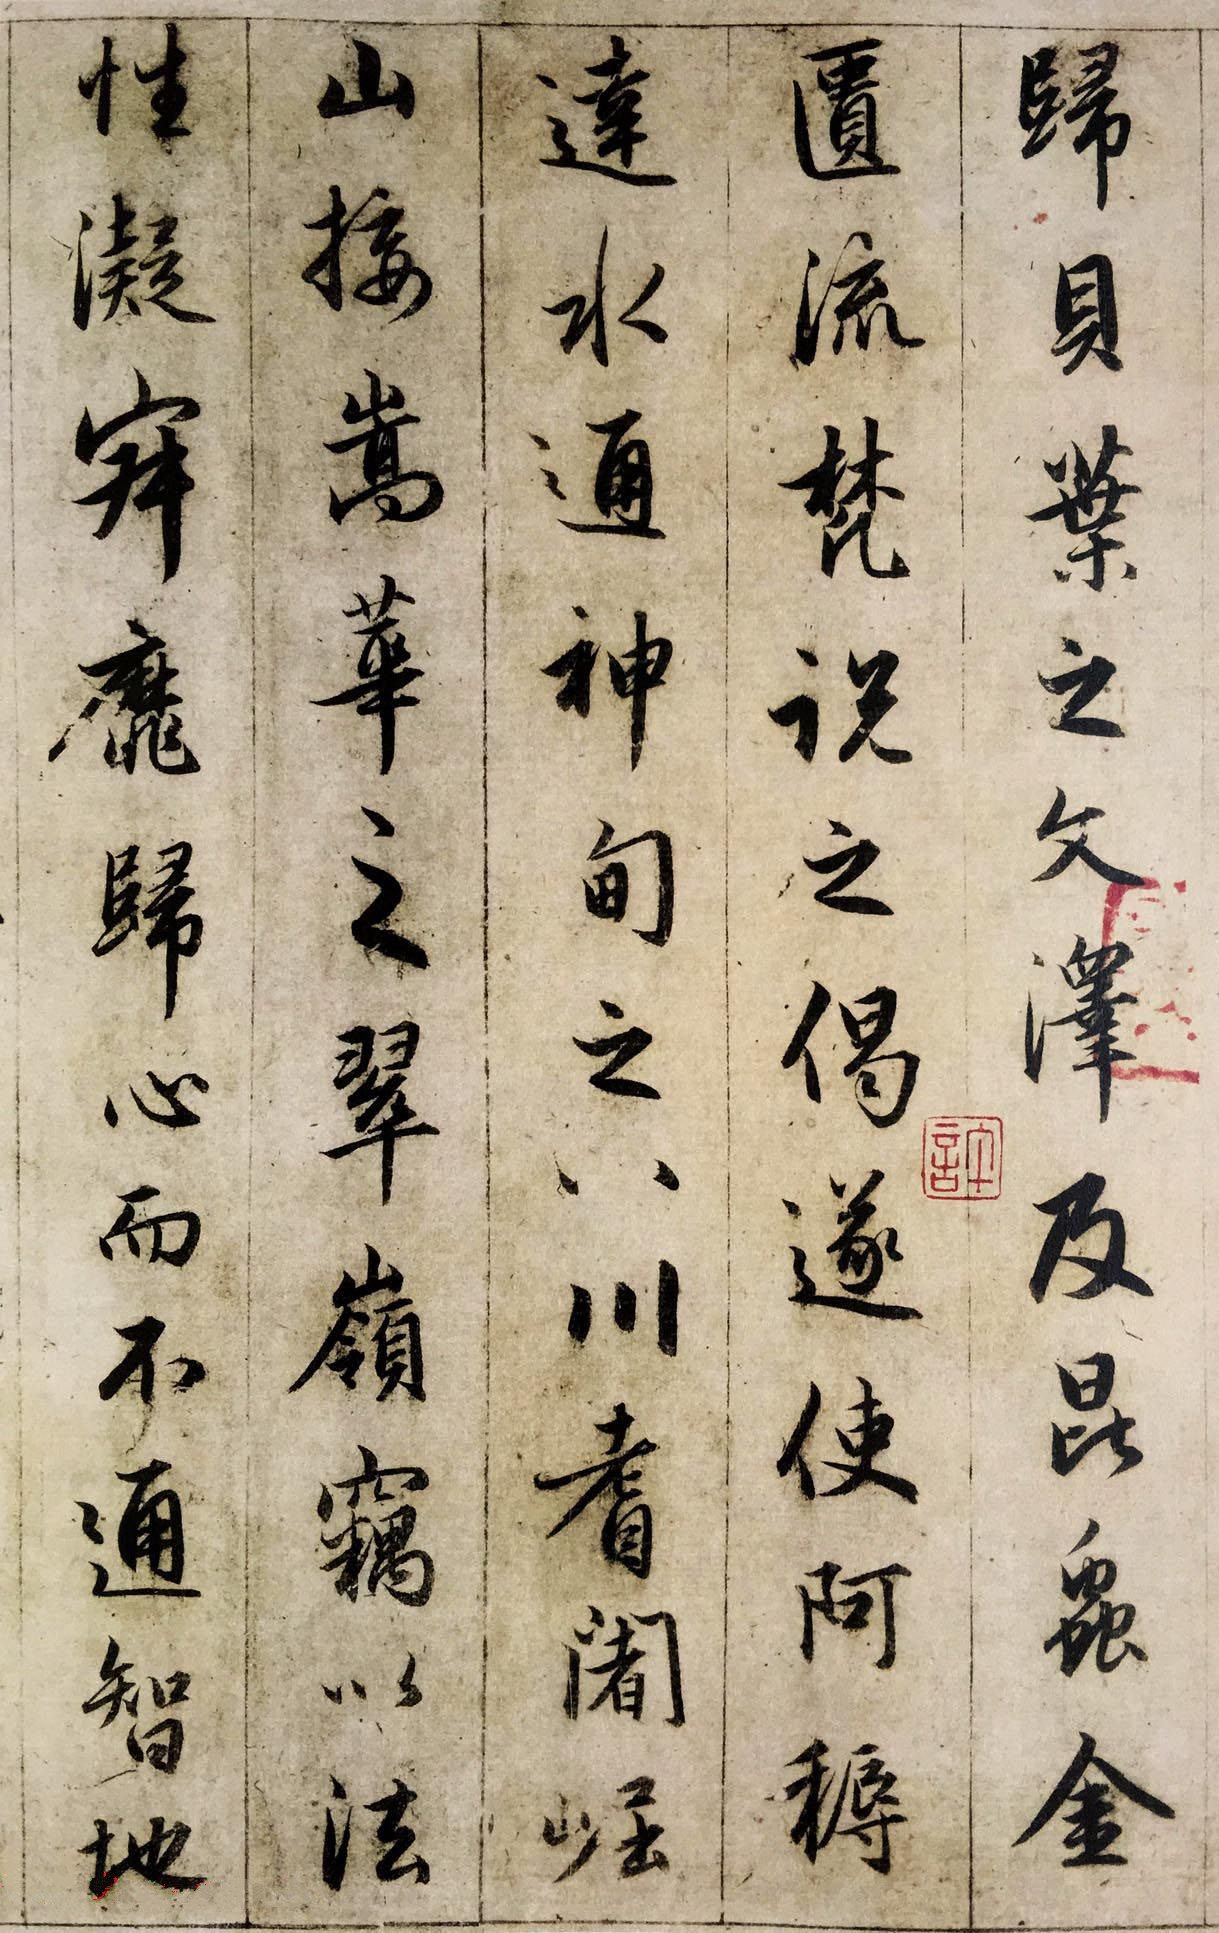 歸貝葉之文澤及昆蟲金
匱流梵說之偈遂使阿耨
達水通神甸之八川耆闍崛
山接嵩華之翠嶺竊以法
性凝寂靡歸心而不通智地